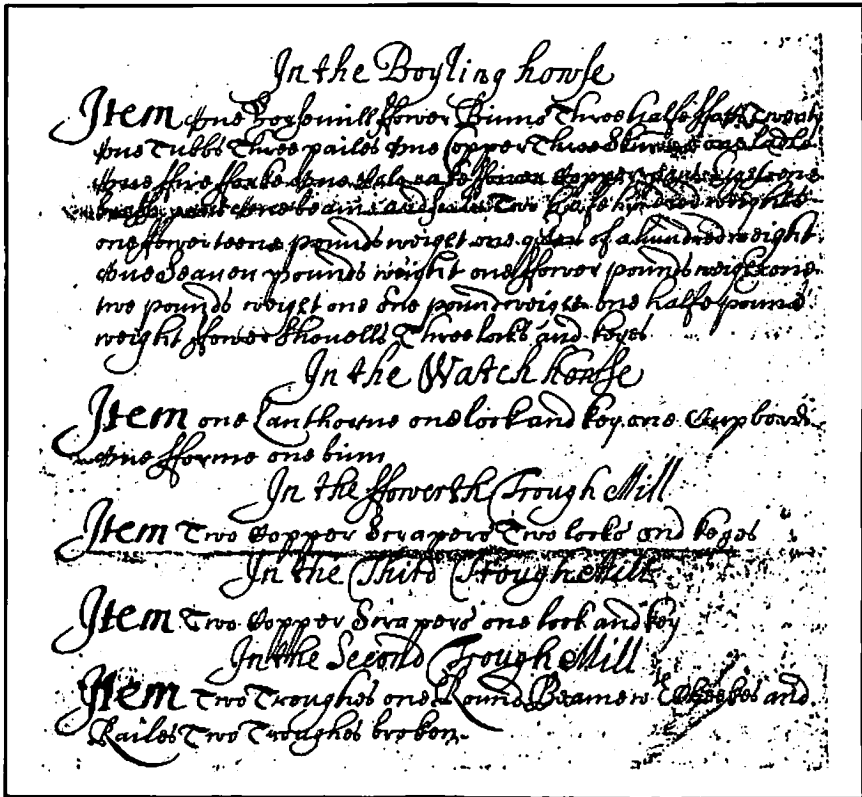 In the Boyling howse
Item One horsemill ffower Binns Three halfe ffatts Twenty
One Tubbs Three pailes One Copper Three Skimers one Ladle
One ffire fforke One Cole rake ffower Copper one
brasse One beame and Two halfe hundred weights
one ffower teene pounds weight one of a hundred weight
One Seaven pounds weight one ffower pounds weight one
two pounds weight one one pound weight one halfe pound
weight ffower Shovells Three locks and keyes
In the Watch howse
Item one Lanthorne one lock and key one Cupboard
One fforme one binn
In the ffowerth Trough Mill
Item Two Copper Scrapers Two locks and keyes
In the Third Trough Mill
Item Two Copper Scrapers one lock and key
In the Second Trough Mill
Item Two Troughes one Round Beame wth Cheekes and
Railes Two Troughes broken